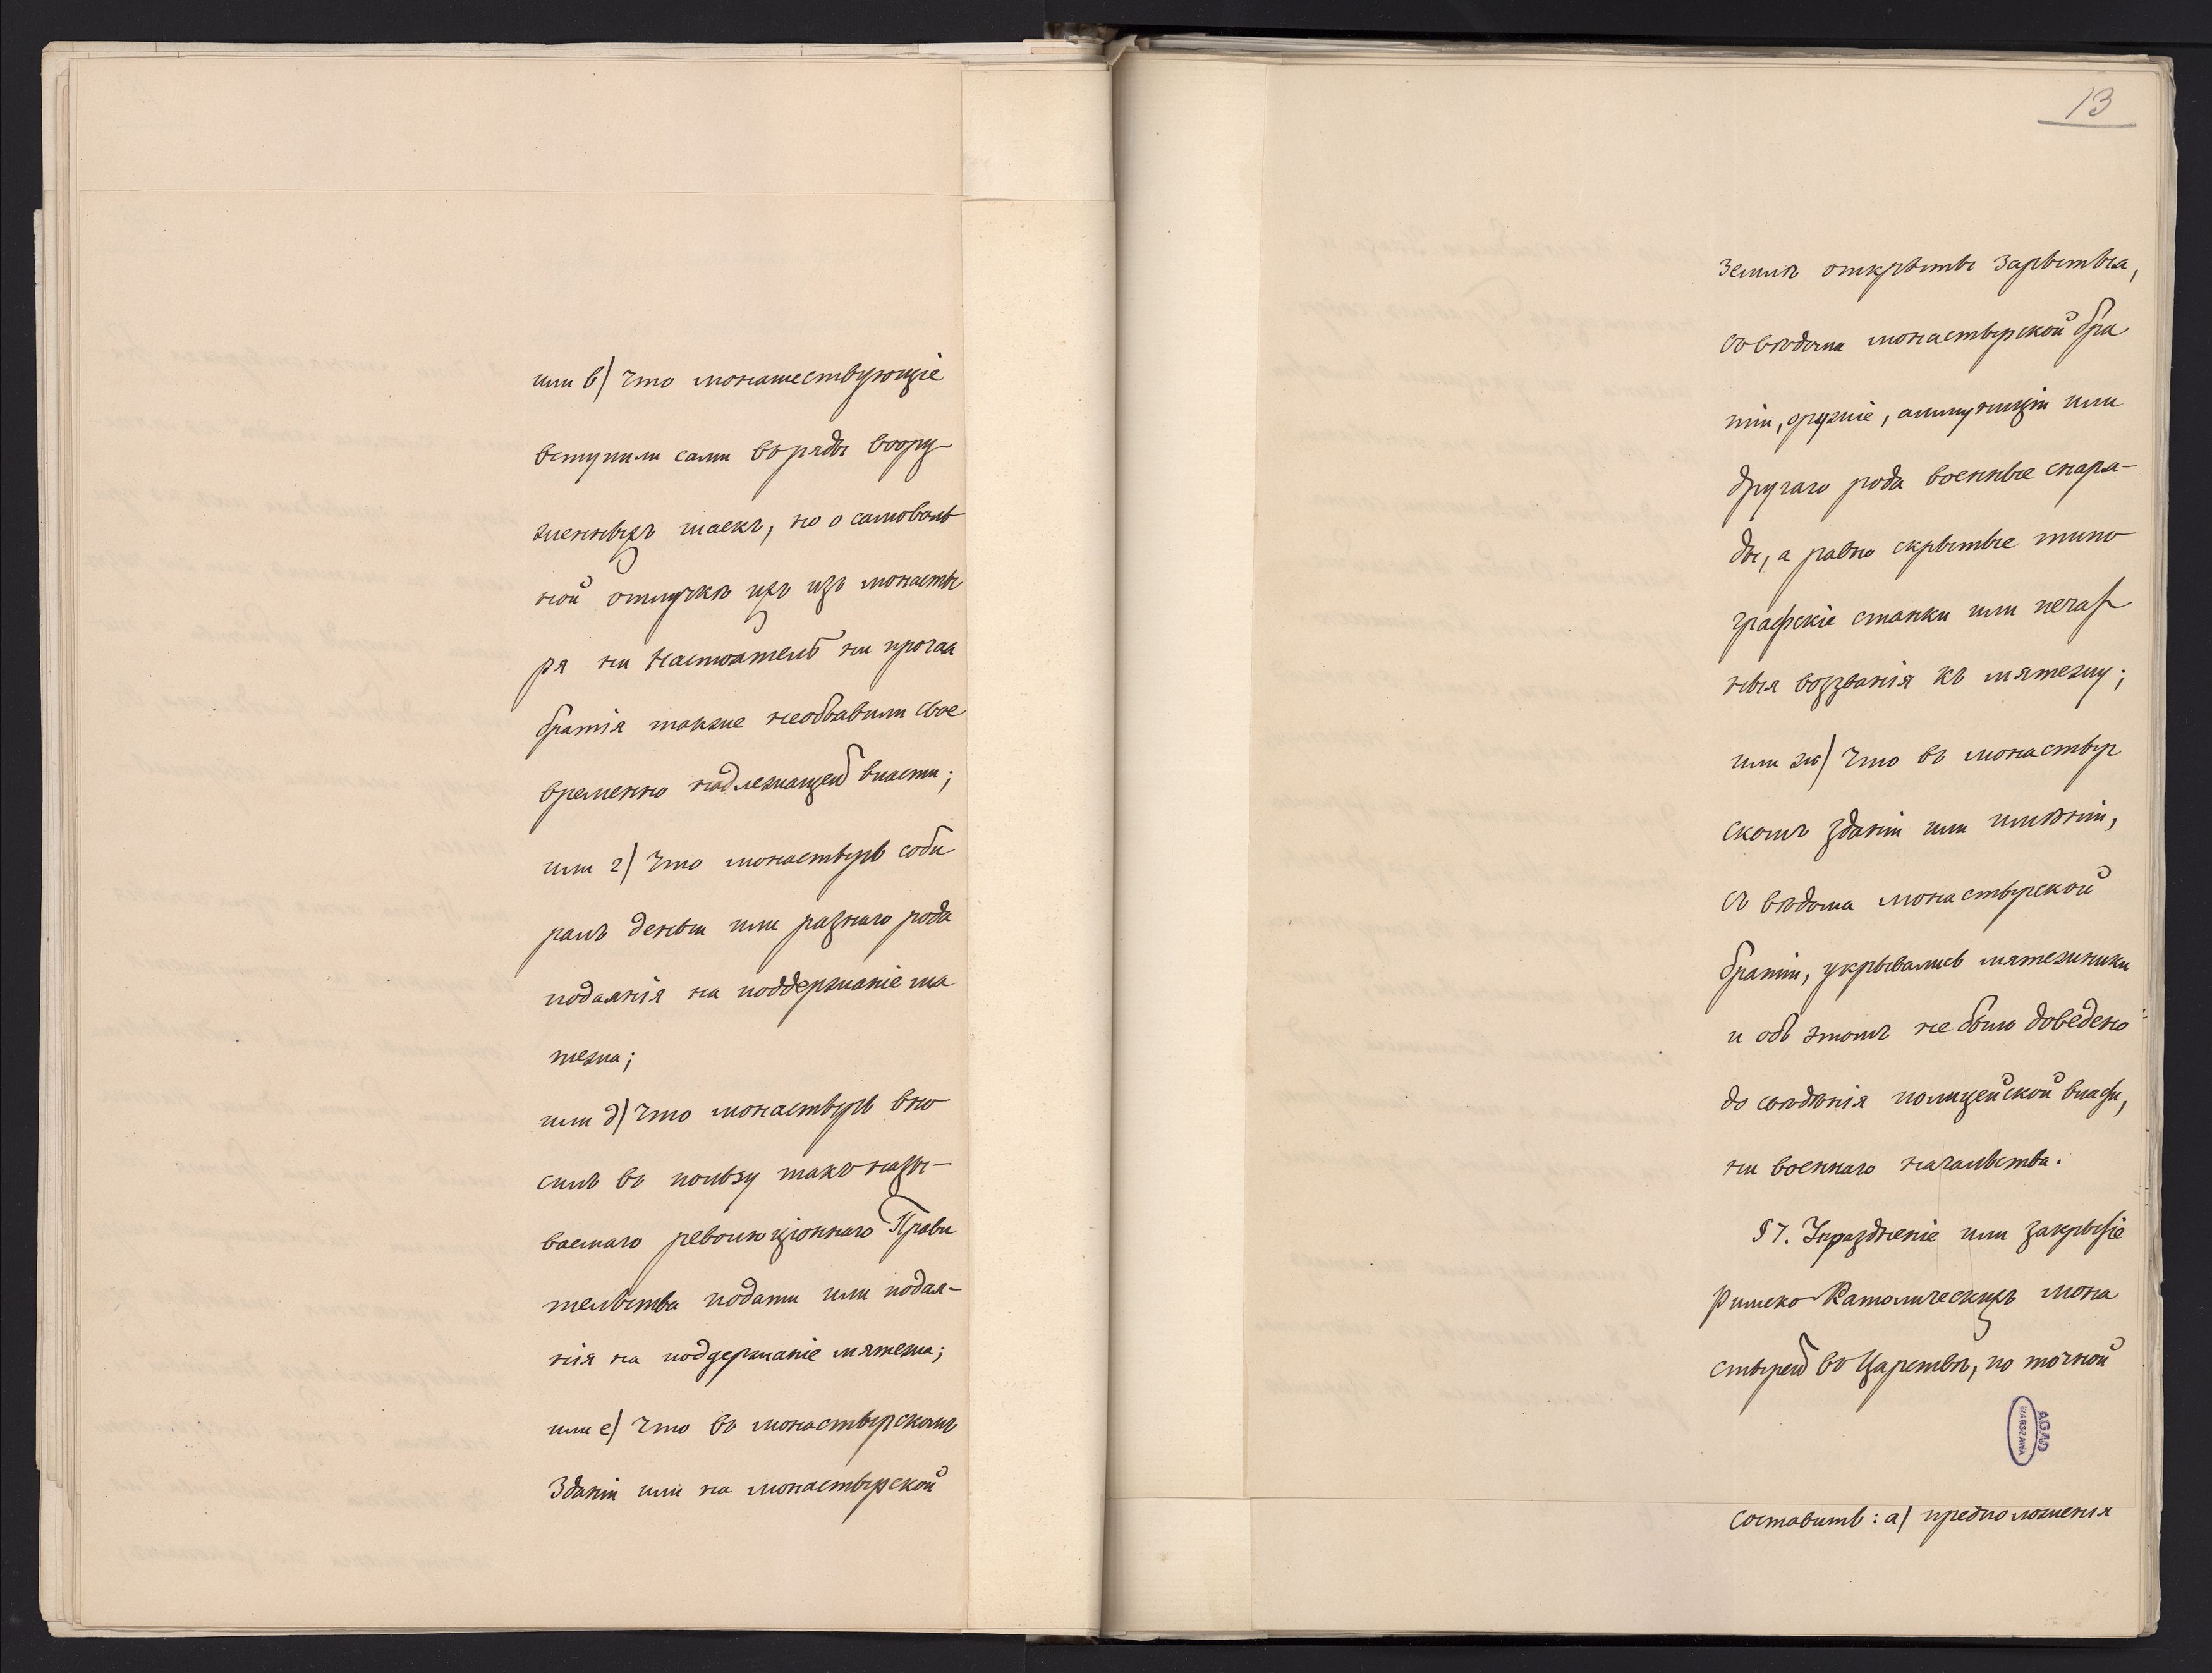 или в) что монашествующіе
вступили сами въ ряды воору
женныхъ шаекъ, но о самоволь
ной отлучкѣ ихъ изъ монасты
ря ни Настоятель ни прочая
братія также необъявили свое
временно надлежащей власти;
или г) что монастырь соби
ралъ деньги или разнаго рода
подаянія на поддержаніе мя
тежа;
или д) что монастырь вно
силъ въ пользу такъ назы-
ваемаго революціоннаго Прави
тельства подати или подая-
нія на поддержаніе мятежа;
или е) что въ монастырскомъ
зданіи или на монастырской
13
землѣ открыты зарытыя,
съ вѣдома монастырской бра
тіи, оружіе, аммуниціи или
другаго рода военные снаря-
ды, а равно скрытые типо
графскіе станки или печат
ныя воззванія къ мятежу;
или ж) что въ монастыр
скомъ зданіи или имѣніи,
съ вѣдома монастырской
братіи, укрывались мятежники
и объ этомъ не было доведено
до свѣдѣнія полицейской власти,
ни военнаго начальства.
§ 7. Упраздненіе или закрытіе
Римско-Католическихъ мона
стырей въ Царствѣ, по точной
AGAD
WARSZAWA
составить: а) предположенія